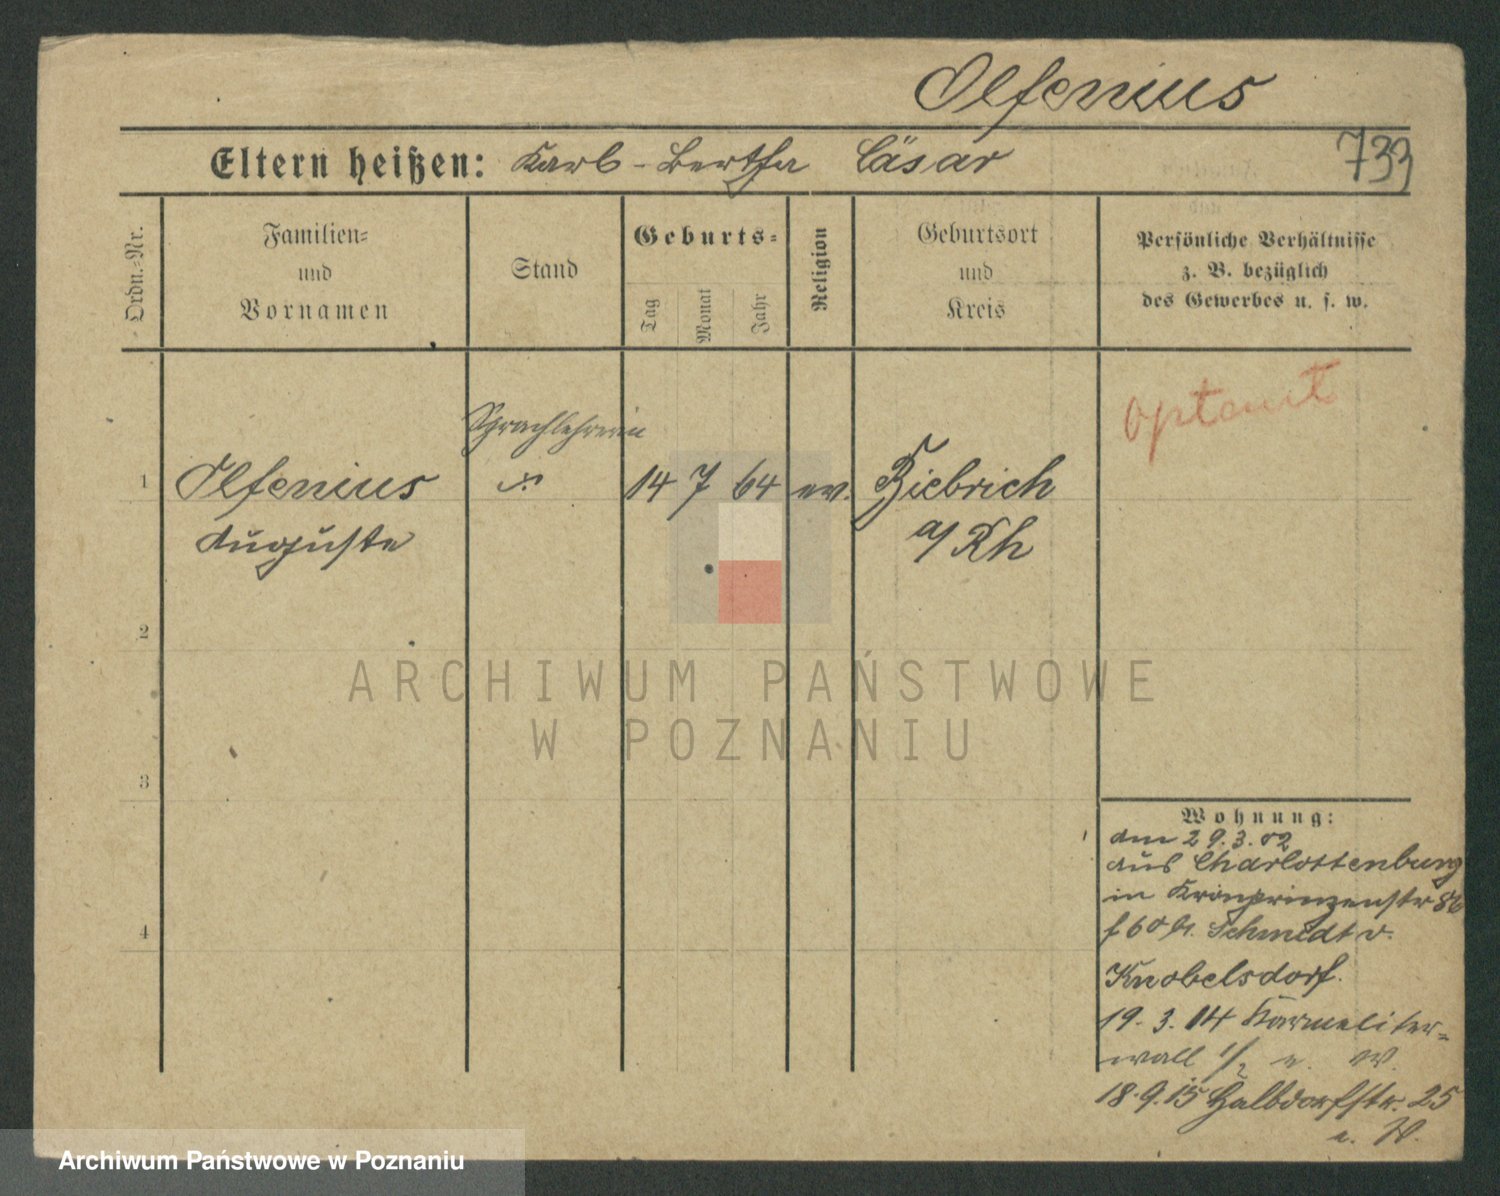 Olfenius
Eltern heißen: Karl - Bertha Cäsar
733
Ordn.-Nr.
Familien-
und
Vornamen
Stand
Geburts-
Tag
Monat
Jahr
Religion
Geburtsort
und
Kreis
Persönliche Verhältnisse
z. B. bezüglich
des Gewerbes u. s. w.
optant
Sprachlehrerin
1
Olfenius
14 7 64 ev.
Biebrich
Auguste
a/ Rh
2
3
4
ARCHIWUM PAŃSTWOWE
W POZNANIU
Wohnung:
am 29.3.02
aus Charlottenburg
in Kronprinzenstr 86
Schmidt v.
Knobelsdorf.
19. 3. 14 Karmeliter-
wall 1/2 e. W.
18.9.15 Halbdorfstr. 25
e. W.
Archiwum Państwowe w Poznaniu